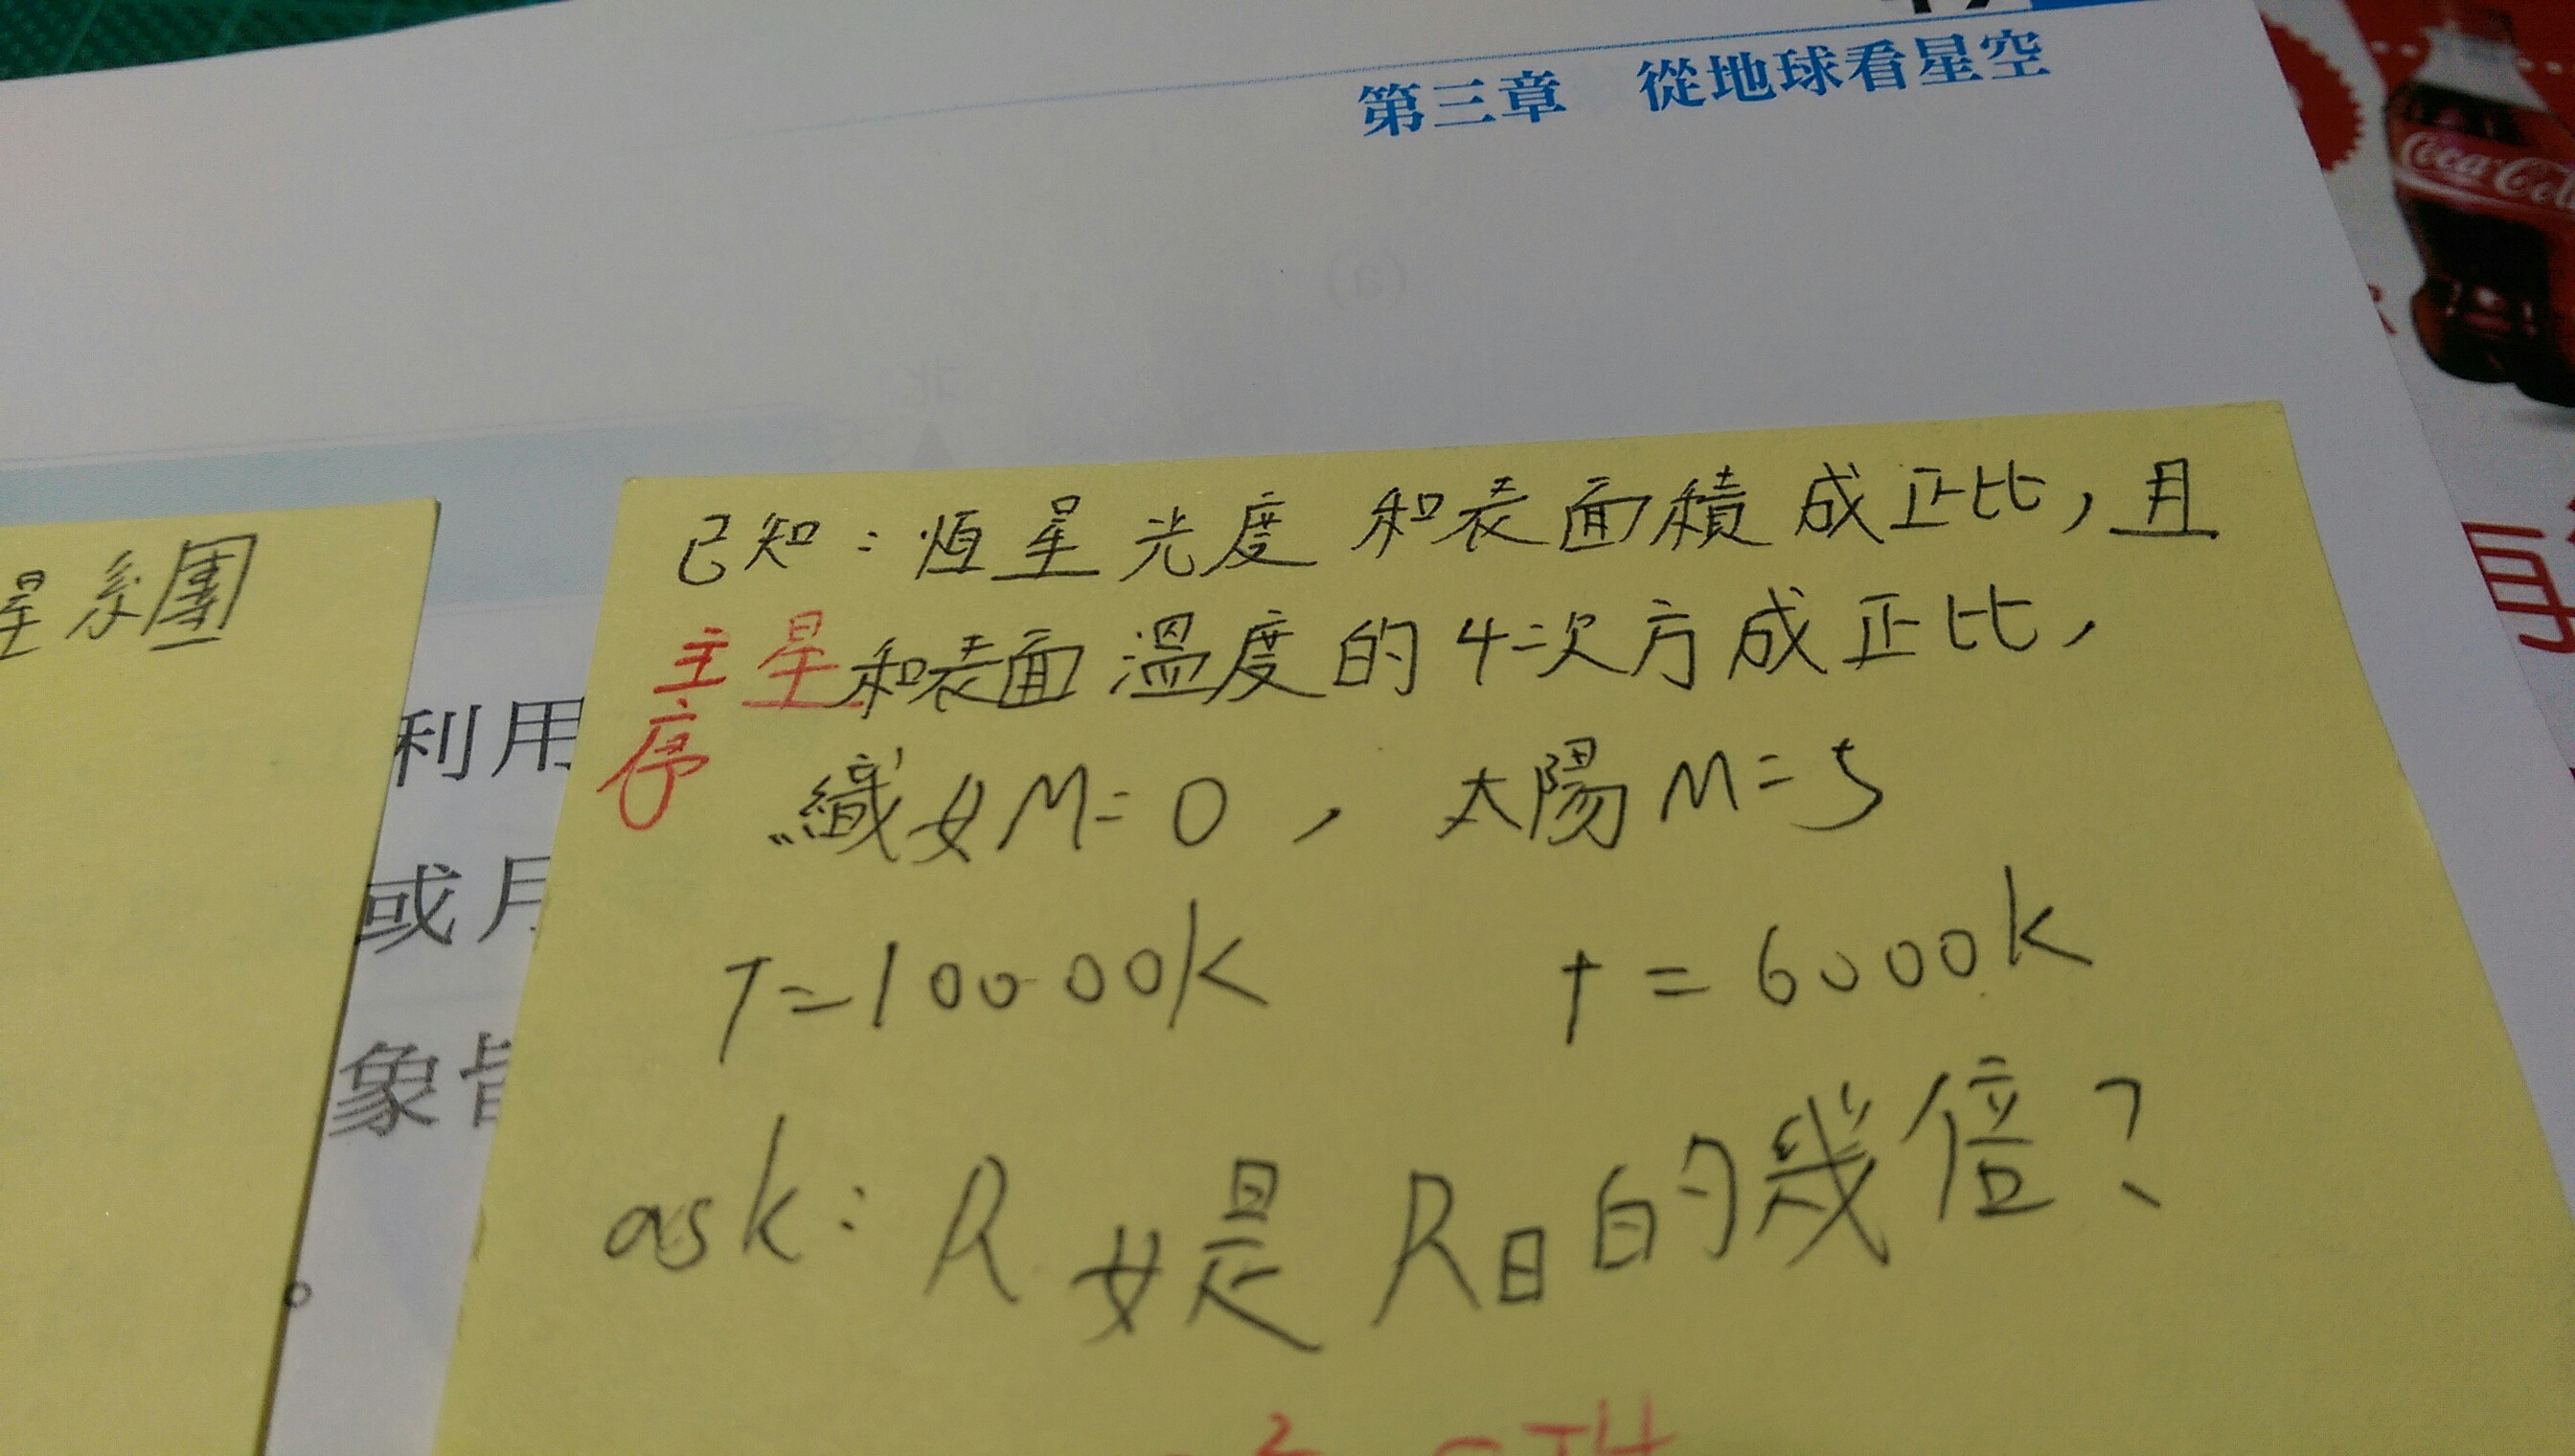 第三章 從地球看星空
Coca-Cola
(a)
北
再
已知：恆星光度和表面積成正比，且
主星和表面溫度的4次方成正比，
序
織女M=0， 太陽M=5
T=10000K t=6000K
ask：R女是R日的幾倍？
星系團
利用
或月
象皆
。